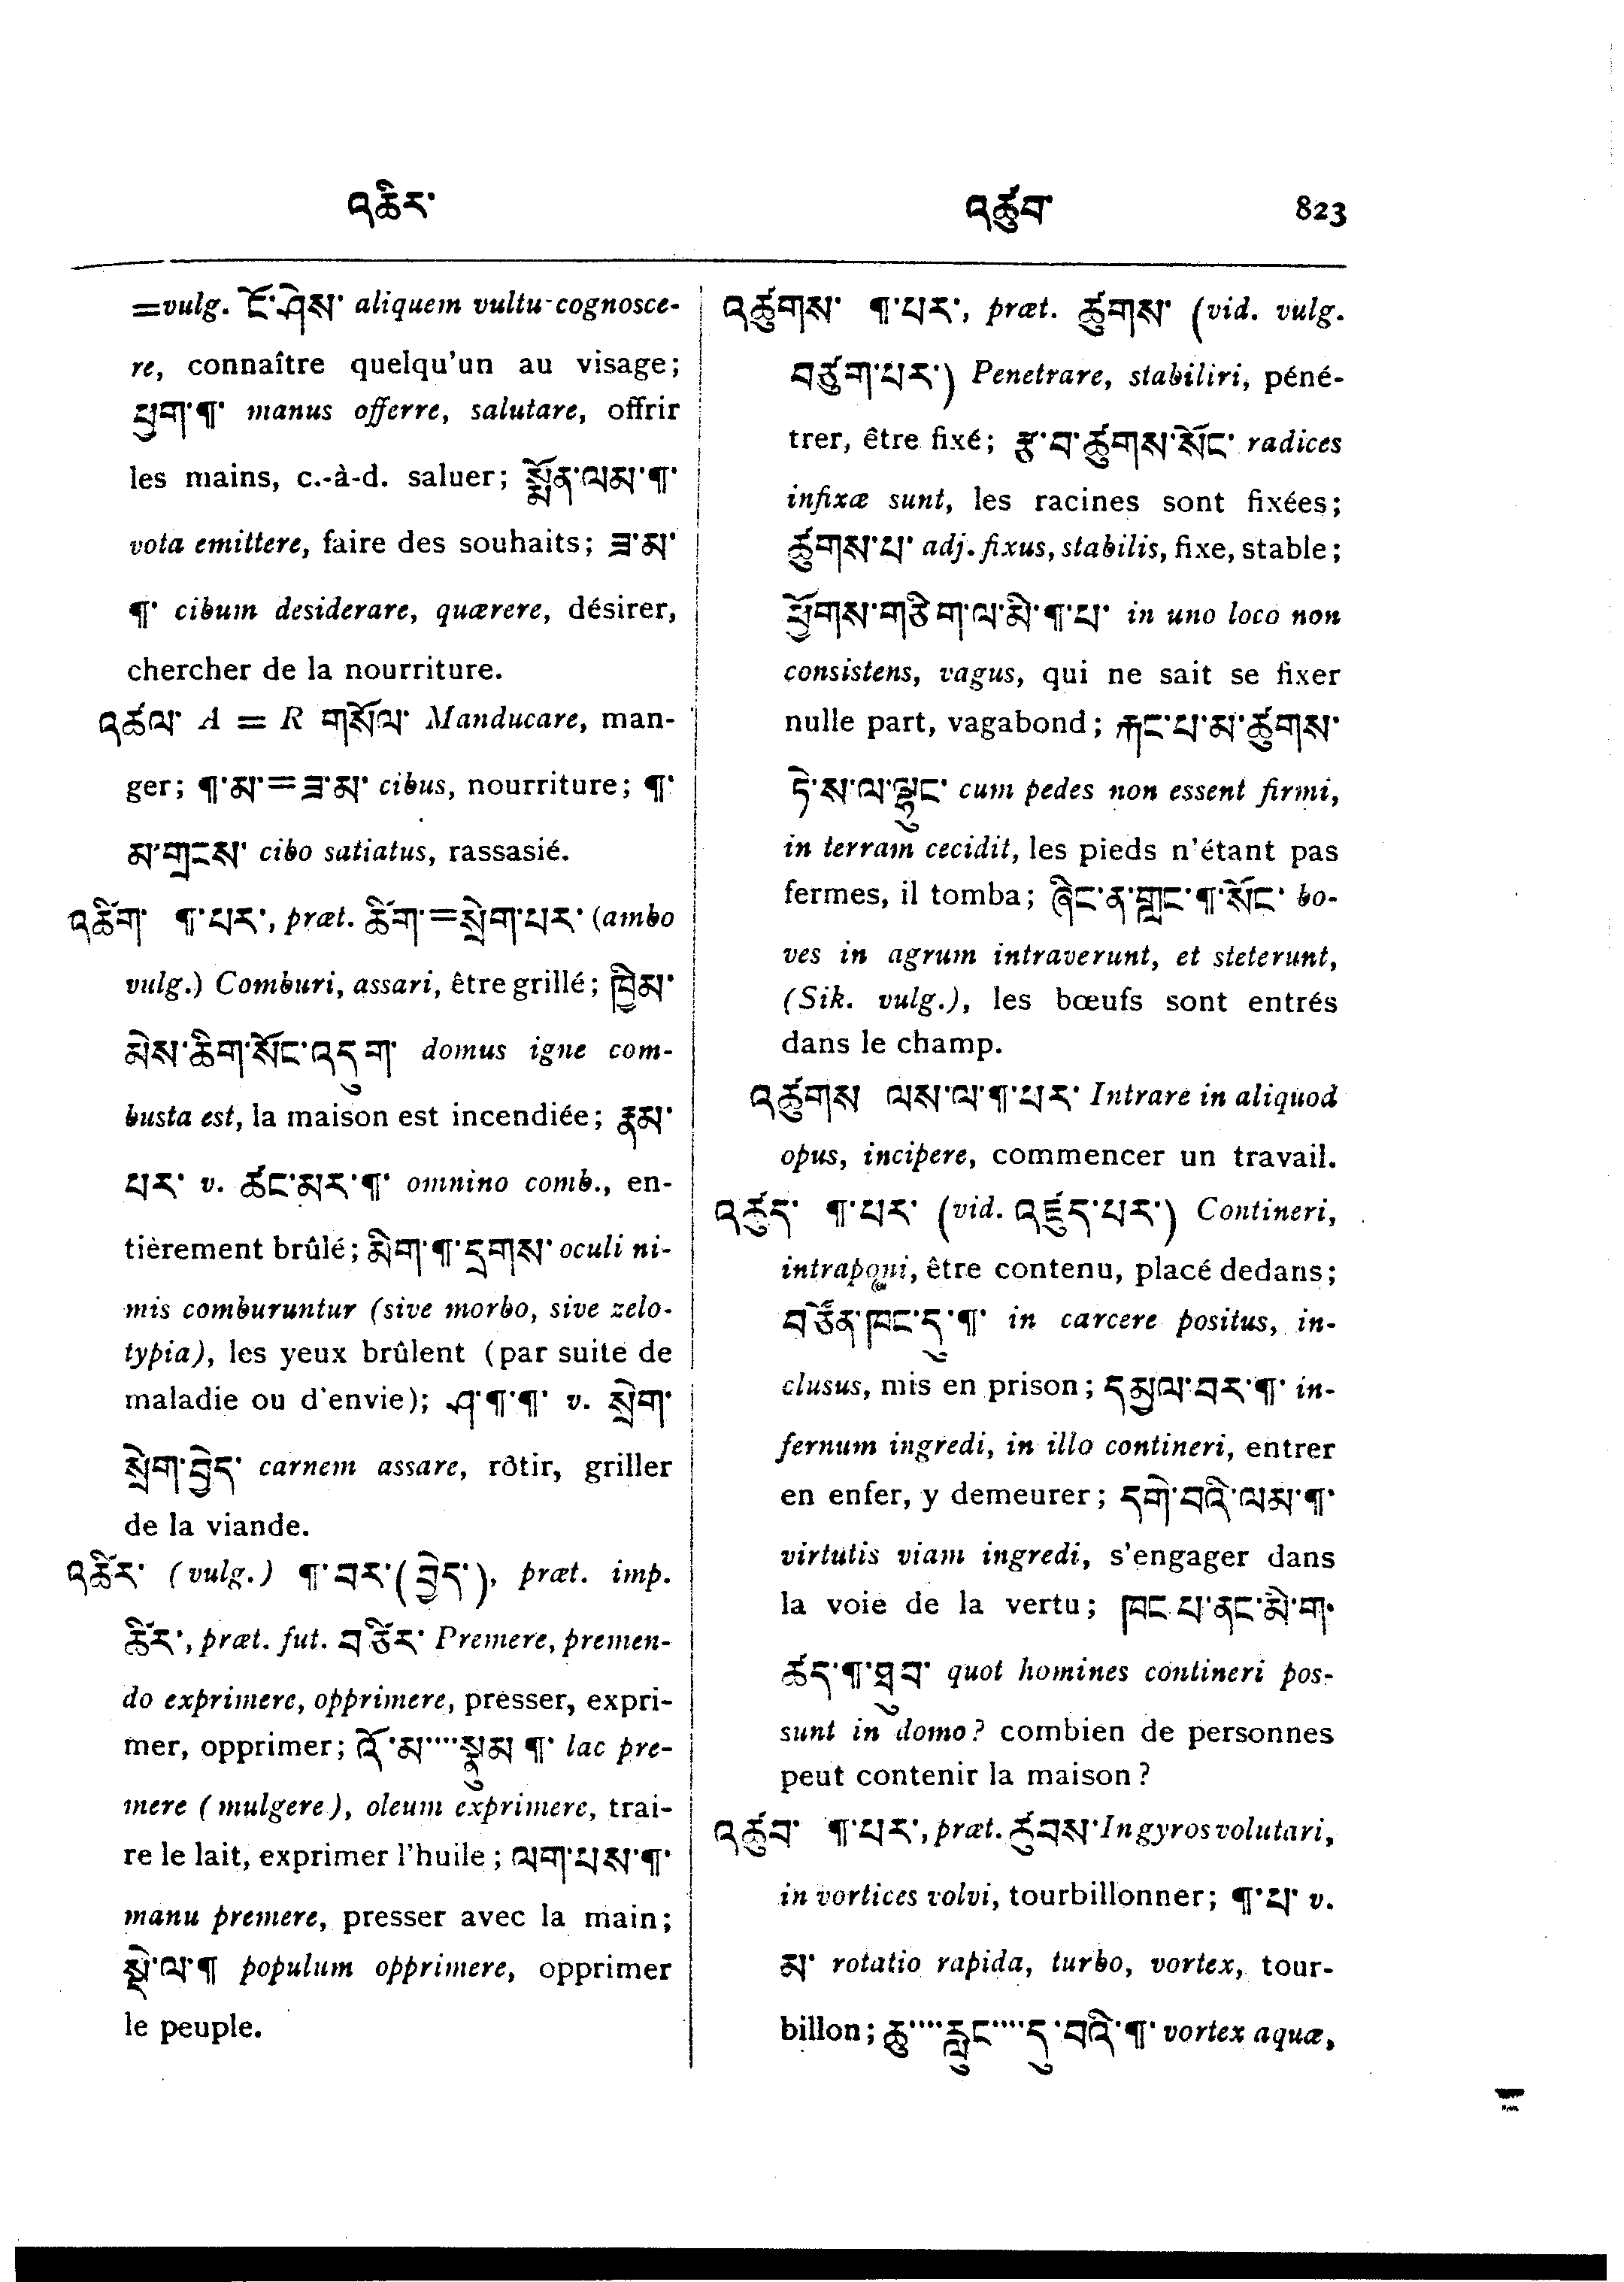 འཚིར་ འཚུབ་ 823
=vulg. ངོ་ཤེས་ aliquem vultu cognosce-
re, connaître quelqu'un au visage;
ཕྱག་¶་ manus offerre, salutare, offrir
les mains, c.-à-d. saluer; སྨོན་ལམ་¶་
vota emittere, faire des souhaits; ཟ་མ་
¶་ cibum desiderare, quærere, désirer,
chercher de la nourriture.
འཚལ་ A = R གསོལ་ Manducare, man-
ger; ¶་མ་=ཟ་མ་ cibus, nourriture; ¶་
མ་གྲངས་ cibo satiatus, rassasié.
འཚིག་ ¶་པར་, præt. ཚིག་=སྲེག་པར་ (ambo
vulg.) Comburi, assari, être grillé; ཁྱིམ་
མེས་ཚིག་སོང་འདུག་ domus igne com-
busta est, la maison est incendiée; རྣམ་
པར་ v. ཚང་མར་¶་ omnino comb., en-
tièrement brûlé; མིག་¶་དྲགས་ oculi ni-
mis comburuntur (sive morbo, sive zelo-
typia), les yeux brûlent (par suite de
maladie ou d'envie); ཤ་¶་¶་ v. སྲེག་
སྲེག་བྱེད་ carnem assare, rôtir, griller
de la viande.
འཚིར་ (vulg.) ¶་བར་(བྱེད་), præt. imp.
ཚིར་, præt. fut. བཙིར་ Premere, premen-
do exprimere, opprimere, presser, expri-
mer, opprimer; འོ་མ་····སྣུམ ¶་ lac pre-
mere (mulgere), oleum exprimere, trai-
re le lait, exprimer l'huile; ལག་པས་¶་
manu premere, presser avec la main;
སྡེ་ལ་¶ populum opprimere, opprimer
le peuple.
འཚུགས་ ¶་པར་, præt. ཚུགས་ (vid. vulg.
བཙུག་པར་) Penetrare, stabiliri, péné-
trer, être fixé; རྩ་བ་ཚུགས་སོང་ radices
infixæ sunt, les racines sont fixées;
ཚུགས་པ་ adj. fixus, stabilis, fixe, stable;
ཕྱོགས་གཅིག་ལ་མི་¶་པ་ in uno loco non
consistens, vagus, qui ne sait se fixer
nulle part, vagabond; རྐང་པ་མ་ཚུགས་
ཏེ་ས་ལ་ལྷུང་ cum pedes non essent firmi,
in terram cecidit, les pieds n'étant pas
fermes, il tomba; ཞིང་ན་གླང་¶་སོང་ bo-
ves in agrum intraverunt, et steterunt,
(Sik. vulg.), les bœufs sont entrés
dans le champ.
འཚུགས ལས་ལ་¶་པར་ Intrare in aliquod
opus, incipere, commencer un travail.
འཚུད་ ¶་པར་ (vid. འཛུད་པར་) Contineri,
intraponi, être contenu, placé dedans;
བཙོན་ཁང་དུ་¶་ in carcere positus, in-
clusus, mis en prison; དམྱལ་བར་¶་ in-
fernum ingredi, in illo contineri, entrer
en enfer, y demeurer; དགེ་བའི་ལམ་¶་
virtutis viam ingredi, s'engager dans
la voie de la vertu; ཁང་པ་ནང་མི་ག་
ཚད་¶་ཐུབ་ quot homines contineri pos-
sunt in domo? combien de personnes
peut contenir la maison?
འཚུབ་ ¶་པར་, præt. ཚུབས་ In gyros volutari,
in vortices volvi, tourbillonner; ¶་པ་ v.
མ་ rotatio rapida, turbo, vortex, tour-
billon; ཆུ་····རླུང་····དུ་བའི་¶་ vortex aquæ,